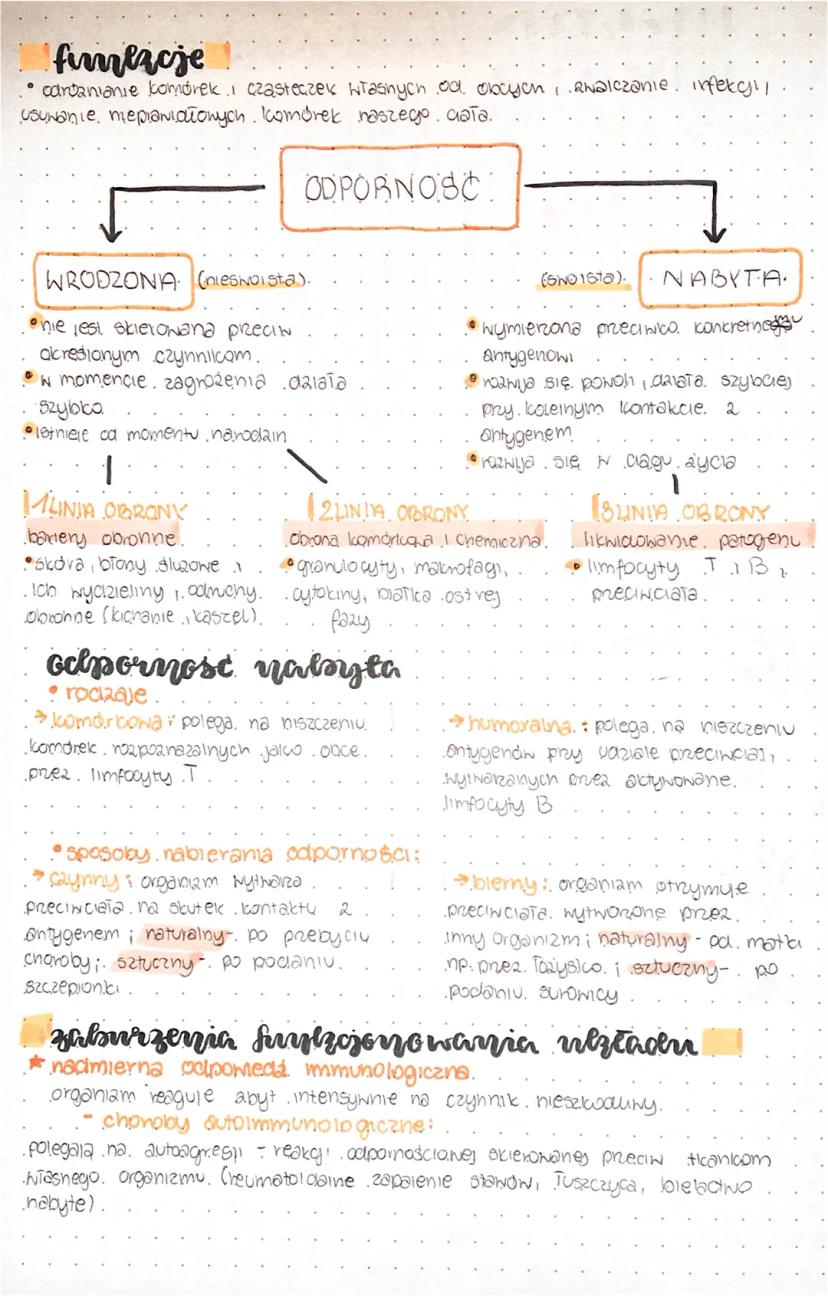 funkcje
• odróżnianie komórek i cząsteczek własnych od obcych, zwalczanie infekcji,
usuwanie nieprawidłowych komórek naszego ciała.
ODPORNOŚĆ
WRODZONA (nieswoista)
• nie jest skierowana przeciw
określonym czynnikom.
• w momencie zagrożenia działa
szybko
• istnieje od momentu narodzin
(swoista) NABYTA
• wymierzona przeciwko konkretnemu
antygenowi
• rozwija się powoli, działa szybciej
przy kolejnym kontakcie z
antygenem
• rozwija się w ciągu życia
1 LINIA OBRONY
bariery obronne
• skóra, błony śluzowe i
ich wydzieliny, odruchy
obronne (kichanie, kaszel)
2 LINIA OBRONY
obrona komórkowa i chemiczna
• granulocyty, makrofagi,
cytokiny, białka ostrej
fazy
3 LINIA OBRONY
likwidowanie patogenu
• limfocyty T i B,
przeciwciała
odporność nabyta
• rodzaje
→ komórkowa: polega na niszczeniu
komórek rozpoznawalnych jako obce
przez limfocyty T
→ humoralna: polega na niszczeniu
antygenów przy udziale przeciwciał,
wytwarzanych przez aktywowane
limfocyty B
• sposoby nabierania odporności:
→ czynny: organizm wytwarza
przeciwciała na skutek kontaktu z
antygenem; naturalny - po przebyciu
choroby; sztuczny - po podaniu
szczepionki
→ bierny: organizm otrzymuje
przeciwciała wytworzone przez
inny organizm; naturalny - od matki
np. przez łożysko; sztuczny - po
podaniu surowicy
zaburzenia funkcjonowania układu
★ nadmierna odpowiedź immunologiczna
organizm reaguje zbyt intensywnie na czynnik nieszkodliwy.
- choroby autoimmunologiczne:
polegają na autoagresji - reakcji odpornościowej skierowanej przeciw tkankom
własnego organizmu (reumatoidalne zapalenie stawów, łuszczyca, bielactwo
nabyte)